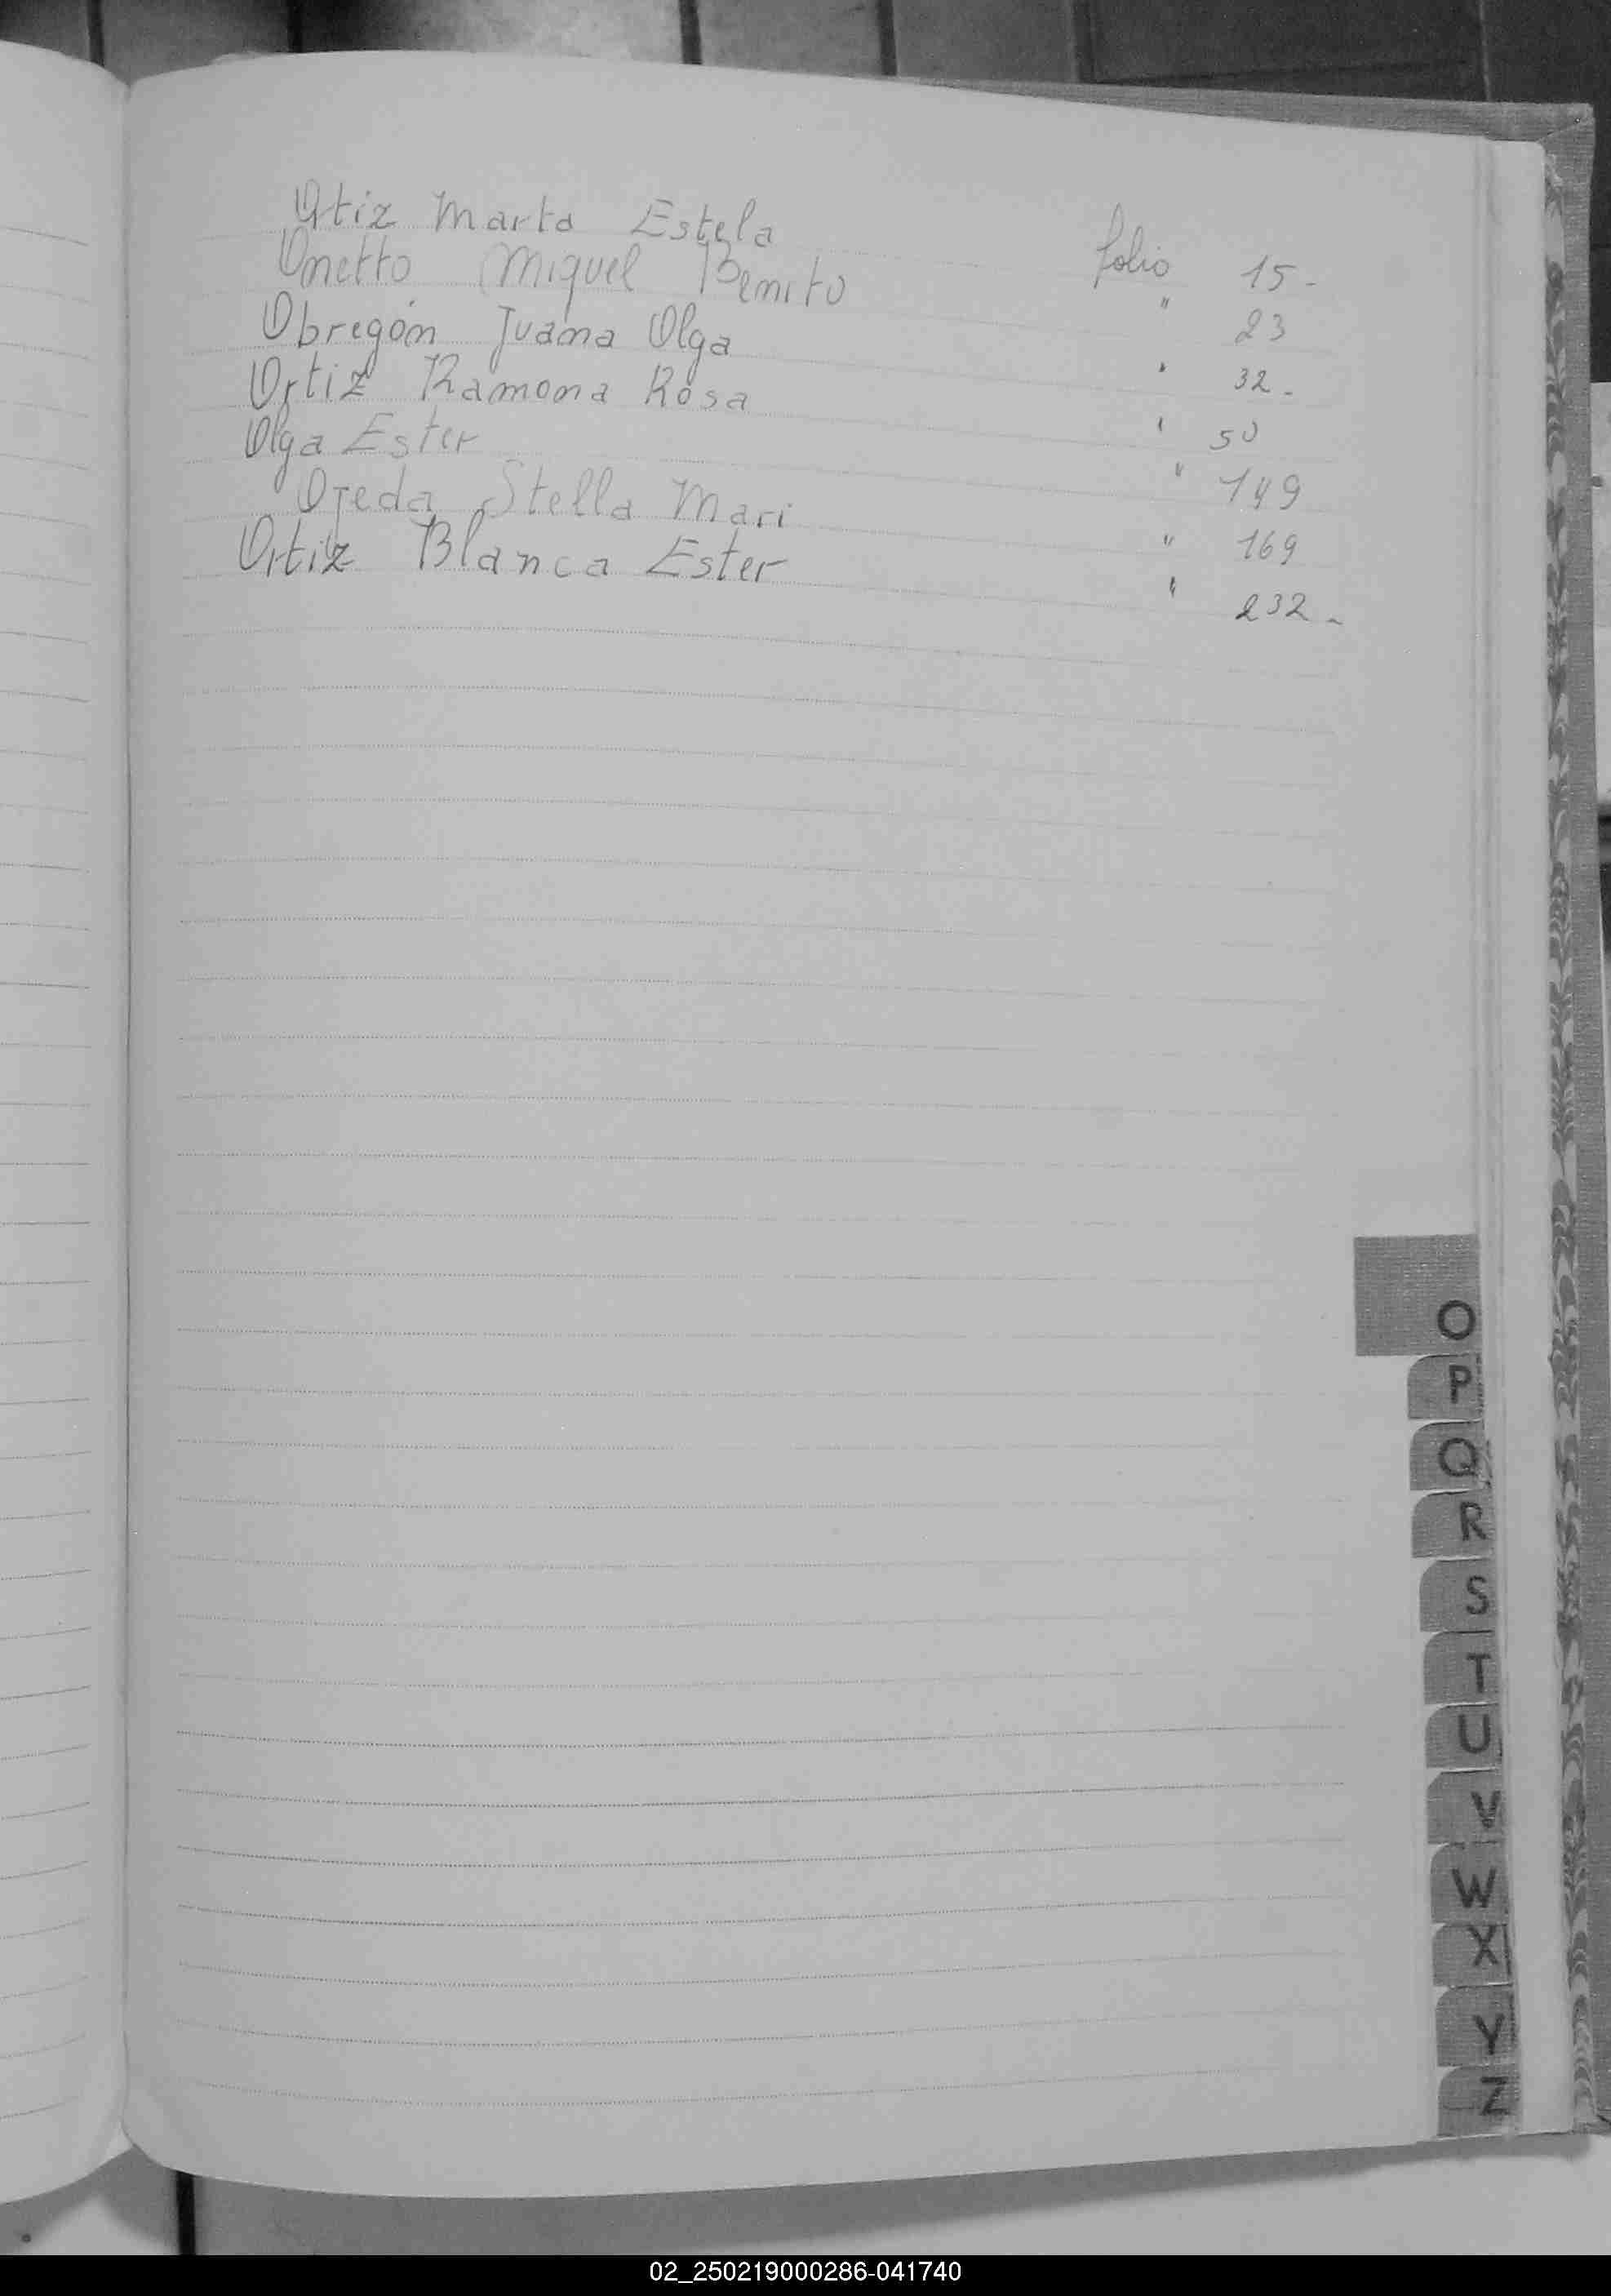 Ortiz Marta Estela folio 15-
Onetto Miguel Benito " 23
Obregón Juana Olga " 32-
Ortiz Ramona Rosa " 50
Olga Ester " 149
Ojeda Stella Mari " 169
Ortiz Blanca Ester " 232-
O
P
Q
R
S
T
U
V
W
X
Y
Z
02_250219000286-041740